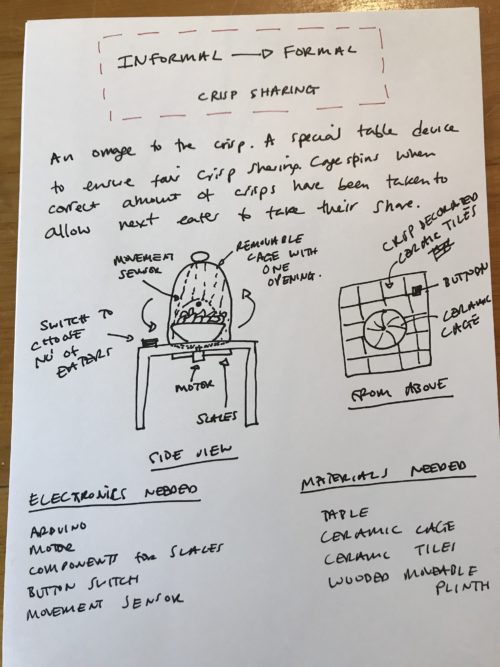 INFORMAL → FORMAL
CRISP SHARING
An omage to the crisp. A special table device
to ensure fair crisp sharing. Cage spins when
correct amount of crisps have been taken to
allow next eater to take their share.
MOVEMENT
SENSOR
REMOVABLE
CAGE WITH
ONE
OPENING.
SWITCH TO
CHOOSE
NO OF
EATERS
MOTOR
SCALES
SIDE VIEW
CRISP DECORATED
CERAMIC TILES
BUTTON
CERAMIC
CAGE
FROM ABOVE
ELECTRONICS NEEDED
ARDUINO
MOTOR
COMPONENTS for SCALES
BUTTON SWITCH
MOVEMENT SENSOR
MATERIALS NEEDED
TABLE
CERAMIC CAGE
CERAMIC TILES
WOODED MOVEABLE
PLINTH